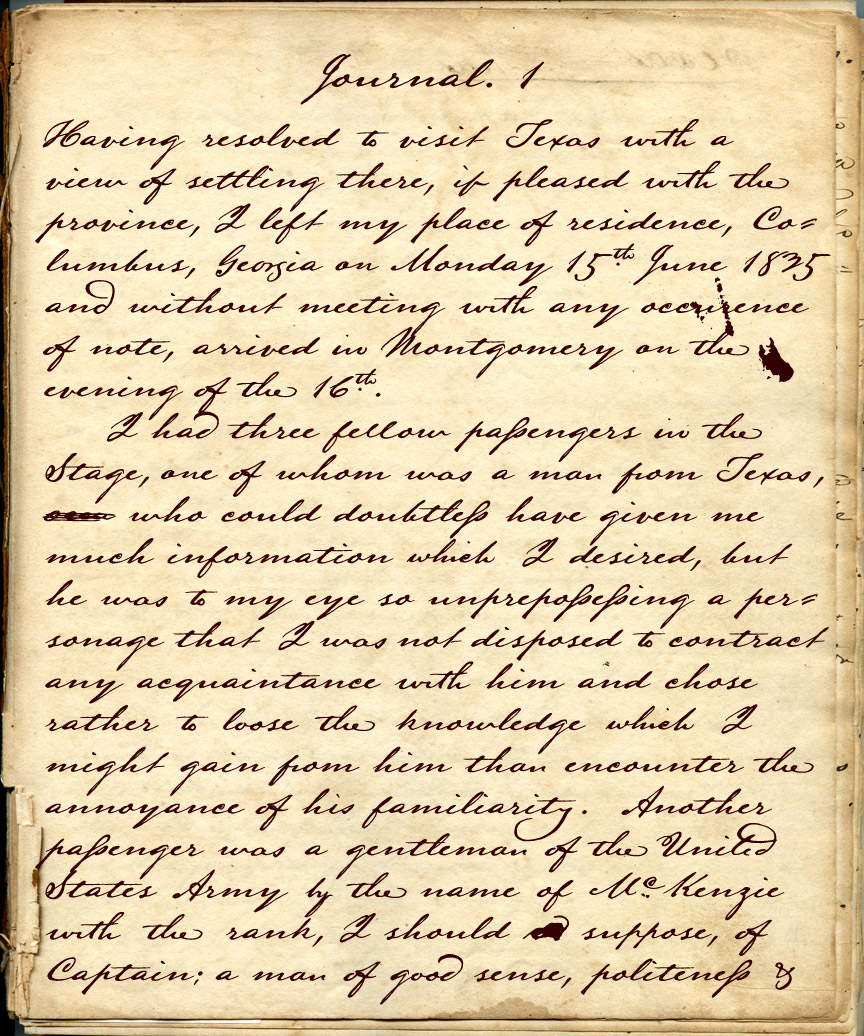 Journal. 1
Having resolved to visit Texas with a
view of settling there, if pleased with the
province, I left my place of residence, Co=
lumbus, Georgia on Monday 15th June 1835
and without meeting with any occurence
of note, arrived in Montgomery on the
evening of the 16th.
I had three fellow paſsengers in the
Stage, one of whom was a man from Texas,
who could doubtleſs have given me
much information which I desired, but
he was to my eye so unprepoſseſsing a per=
sonage that I was not disposed to contract
any acquaintance with him and chose
rather to loose the knowledge which I
might gain from him than encounter the
annoyance of his familiarity. Another
paſsenger was a gentleman of the United
States Army by the name of Mc. Kenzie
with the rank, I should suppose, of
Captain; a man of good sense, politeneſs &